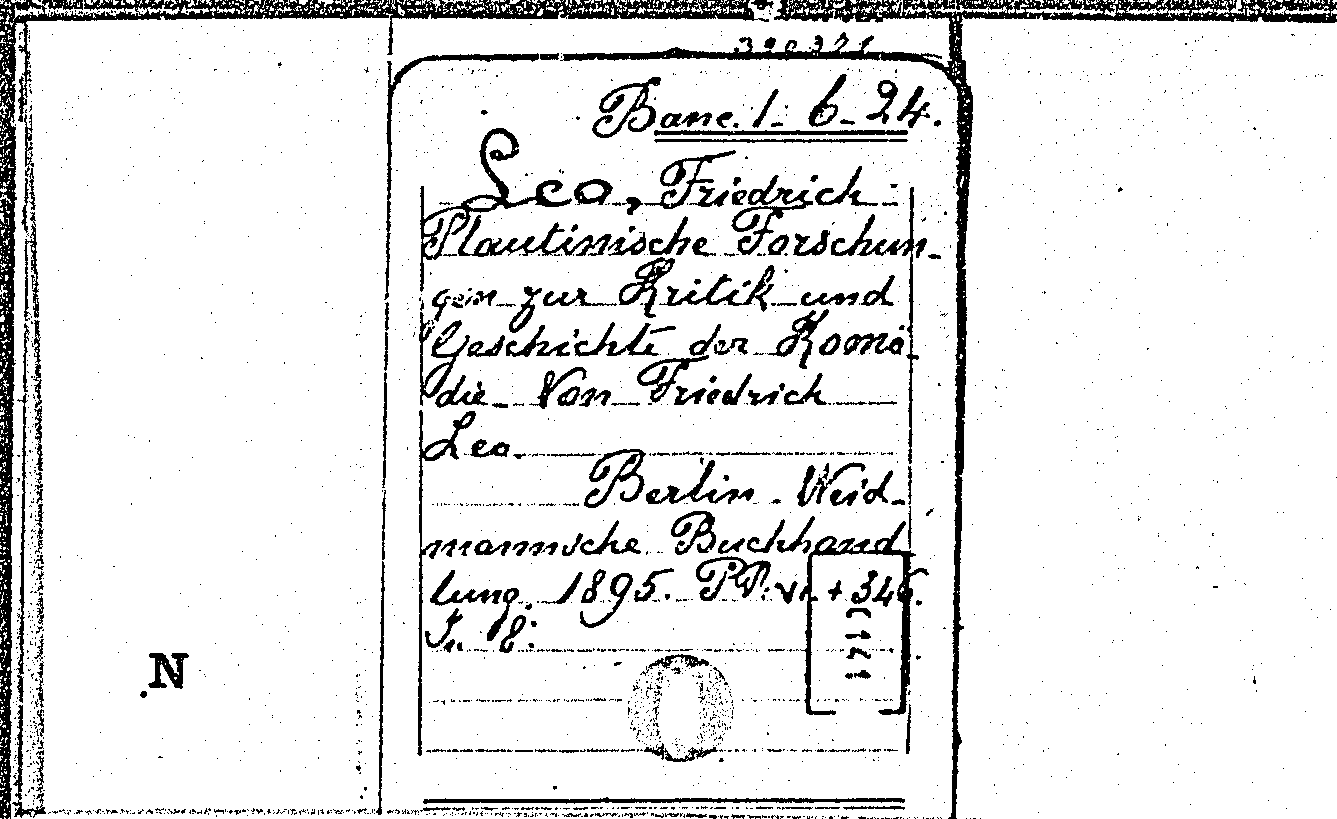 390371
Banc. 1- 6- 24.
Leo, Friedrich
Plautinische Forschun-
gen zur Kritik und
Geschichte der Komö-
die. Von Friedrich
Leo.
Berlin. Weid-
mannsche Buchhand
lung. 1895. PP. VI. + 346.
In 8.
N